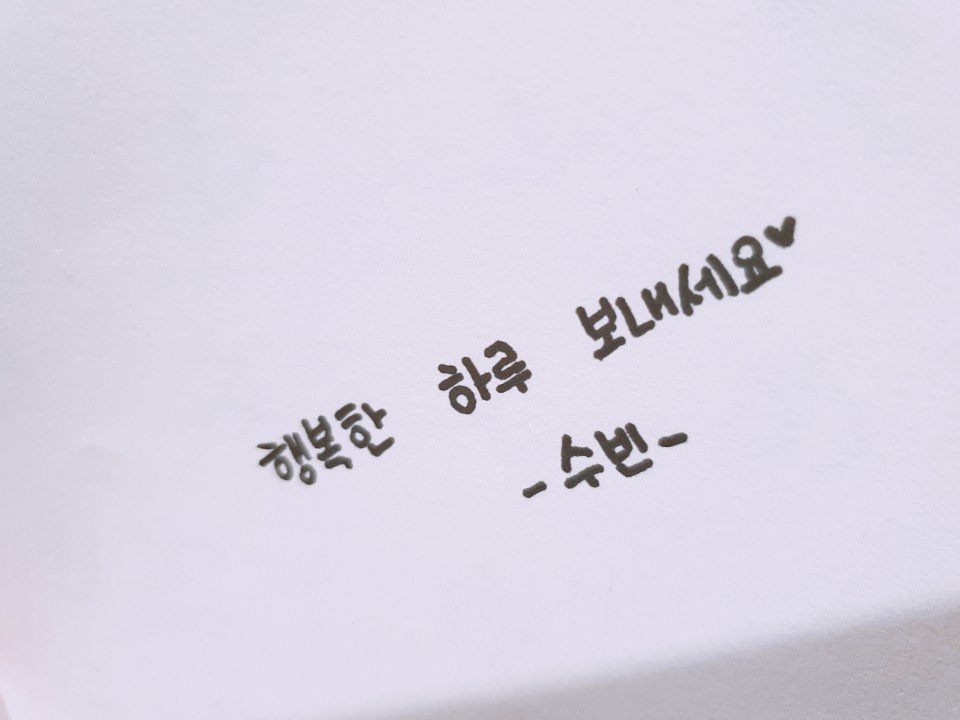 행복한 하루 보내세요♥
-수빈-